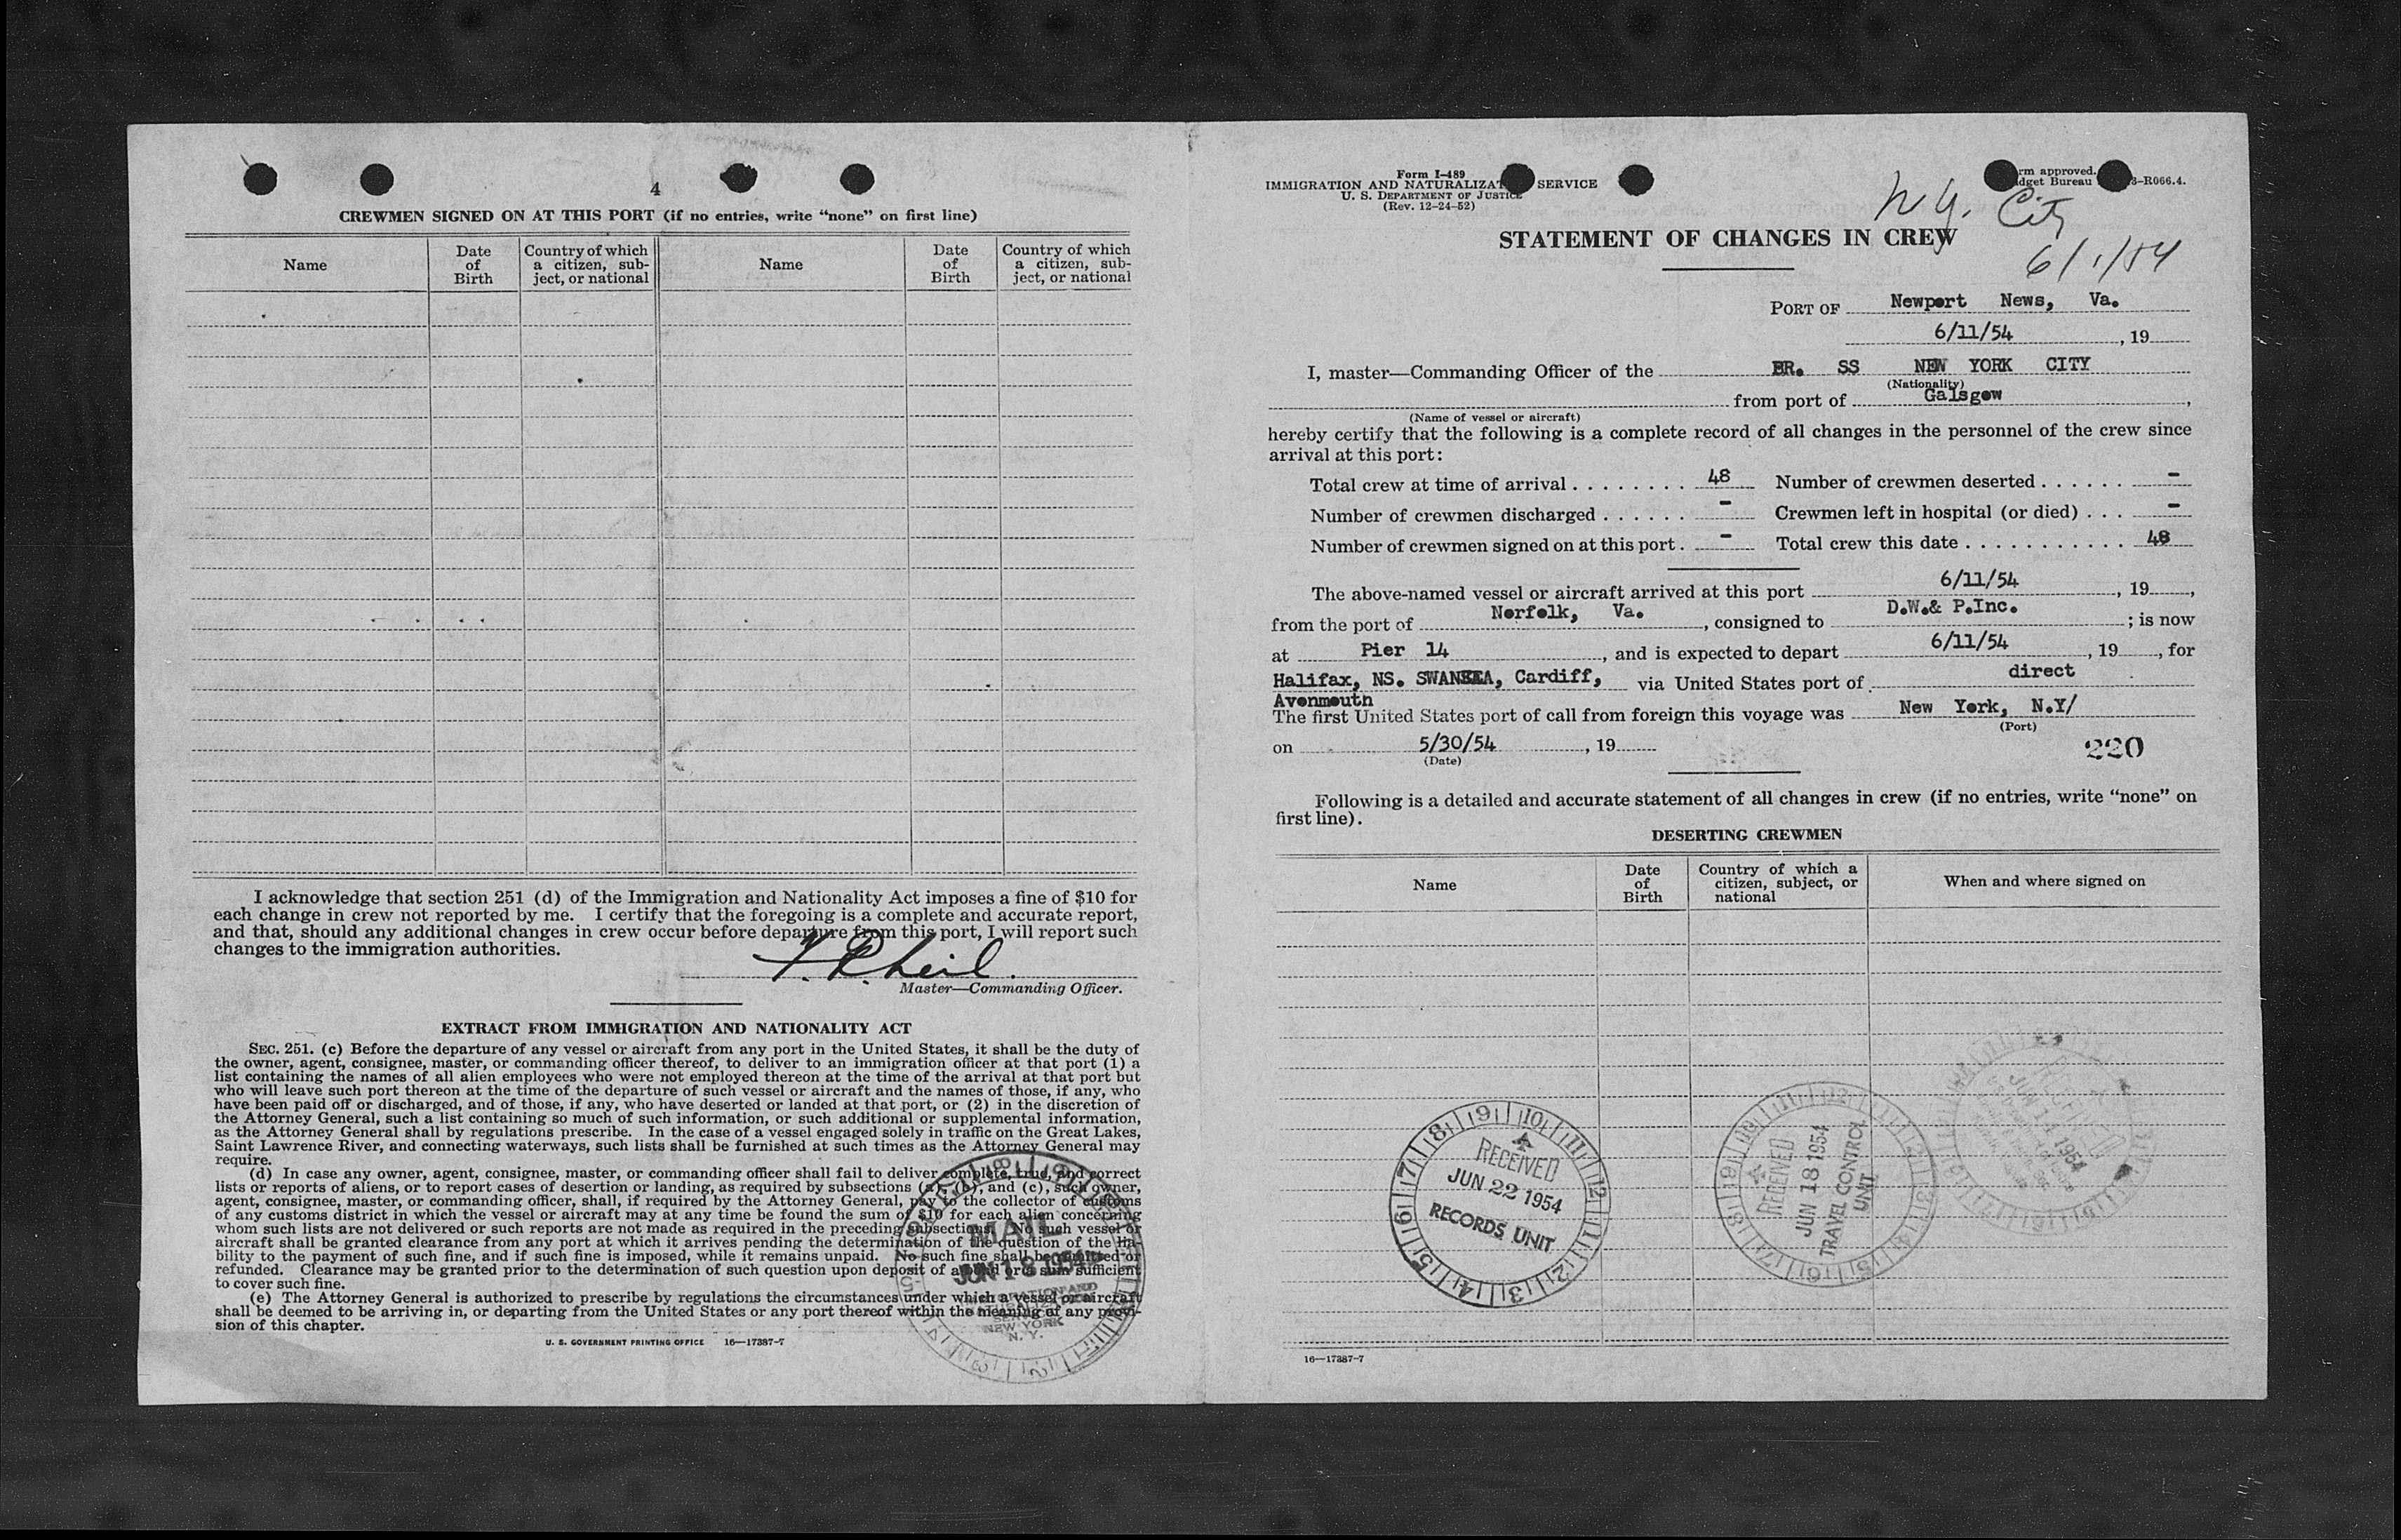 4
CREWMEN SIGNED ON AT THIS PORT (if no entries, write “none” on first line)
Name
Date of Birth
Country of which a citizen, subject, or national
Name
Date of Birth
Country of which a citizen, subject, or national
I acknowledge that section 251 (d) of the Immigration and Nationality Act imposes a fine of $10 for
each change in crew not reported by me. I certify that the foregoing is a complete and accurate report,
and that, should any additional changes in crew occur before departure from this port, I will report such
changes to the immigration authorities.
Master—Commanding Officer.
EXTRACT FROM IMMIGRATION AND NATIONALITY ACT
SEC. 251. (c) Before the departure of any vessel or aircraft from any port in the United States, it shall be the duty of
the owner, agent, consignee, master, or commanding officer thereof, to deliver to an immigration officer at that port (1) a
list containing the names of all alien employees who were not employed thereon at the time of the arrival at that port but
who will leave such port thereon at the time of the departure of such vessel or aircraft and the names of those, if any, who
have been paid off or discharged, and of those, if any, who have deserted or landed at that port, or (2) in the discretion of
the Attorney General, such a list containing so much of such information, or such additional or supplemental information,
as the Attorney General shall by regulations prescribe. In the case of a vessel engaged solely in traffic on the Great Lakes,
Saint Lawrence River, and connecting waterways, such lists shall be furnished at such times as the Attorney General may
require.
(d) In case any owner, agent, consignee, master, or commanding officer shall fail to deliver complete, true, and correct
lists or reports of aliens, or to report cases of desertion or landing, as required by subsections (a), (b), and (c), such owner,
agent, consignee, master, or commanding officer, shall, if required by the Attorney General, pay to the collector of customs
of any customs district in which the vessel or aircraft may at any time be found the sum of $10 for each alien concerning
whom such lists are not delivered or such reports are not made as required in the preceding subsections. No such vessel or
aircraft shall be granted clearance from any port at which it arrives pending the determination of the question of the lia-
bility to the payment of such fine, and if such fine is imposed, while it remains unpaid. No such fine shall be remitted or
refunded. Clearance may be granted prior to the determination of such question upon deposit of a bond or a sum sufficient
to cover such fine.
(e) The Attorney General is authorized to prescribe by regulations the circumstances under which a vessel or aircraft
shall be deemed to be arriving in, or departing from the United States or any port thereof within the meaning of any provi-
sion of this chapter.
U. S. GOVERNMENT PRINTING OFFICE 16—17387-7
MAIL
JUN 18 1954
NEW YORK
N. Y.
Form I-489
IMMIGRATION AND NATURALIZAT SERVICE
U. S. DEPARTMENT OF JUSTICE
(Rev. 12-24-52)
rm approved.
dget Bureau 3-R066.4.
N.Y. City
6/1/54
STATEMENT OF CHANGES IN CREW
PORT OF Newport News, Va.
6/11/54 , 19
I, master—Commanding Officer of the BR. SS NEW YORK CITY
(Nationality)
from port of Galsgow ,
(Name of vessel or aircraft)
hereby certify that the following is a complete record of all changes in the personnel of the crew since
arrival at this port:
Total crew at time of arrival 48 Number of crewmen deserted -
Number of crewmen discharged - Crewmen left in hospital (or died) -
Number of crewmen signed on at this port - Total crew this date 48
The above-named vessel or aircraft arrived at this port 6/11/54 , 19 ,
from the port of Norfolk, Va. , consigned to D.W.& P.Inc. ; is now
at Pier 14 , and is expected to depart 6/11/54 , 19 , for
Halifax, NS. SWANSEA, Cardiff, via United States port of direct
Avonmouth
The first United States port of call from foreign this voyage was New York, N.Y/
(Port)
on 5/30/54 , 19
(Date)
220
Following is a detailed and accurate statement of all changes in crew (if no entries, write “none” on
first line).
DESERTING CREWMEN
Name
Date of Birth
Country of which a citizen, subject, or national
When and where signed on
RECEIVED
JUN 22 1954
RECORDS UNIT
RECEIVED
JUN 18 1954
TRAVEL CONTROL
UNIT
16—17387-7